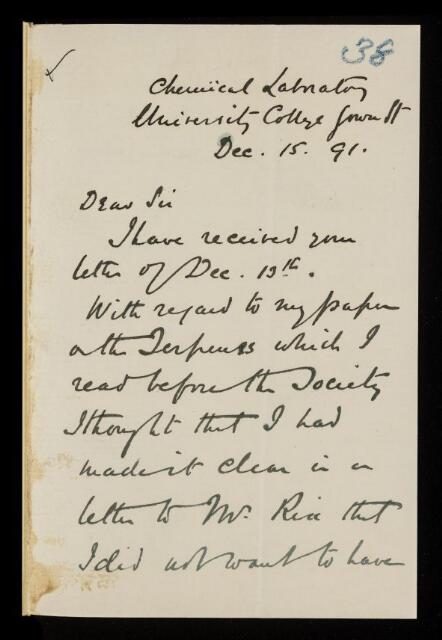 38
Chemical Laboratory
University College Gower St
Dec. 15. 91.
Dear Sir
I have received your
letter of Dec. 13th.
With regard to my paper
on the Terpenes which I
read before the Society
I thought that I had
made it clear in a
letter to Mr. Rix that
I did not want to have